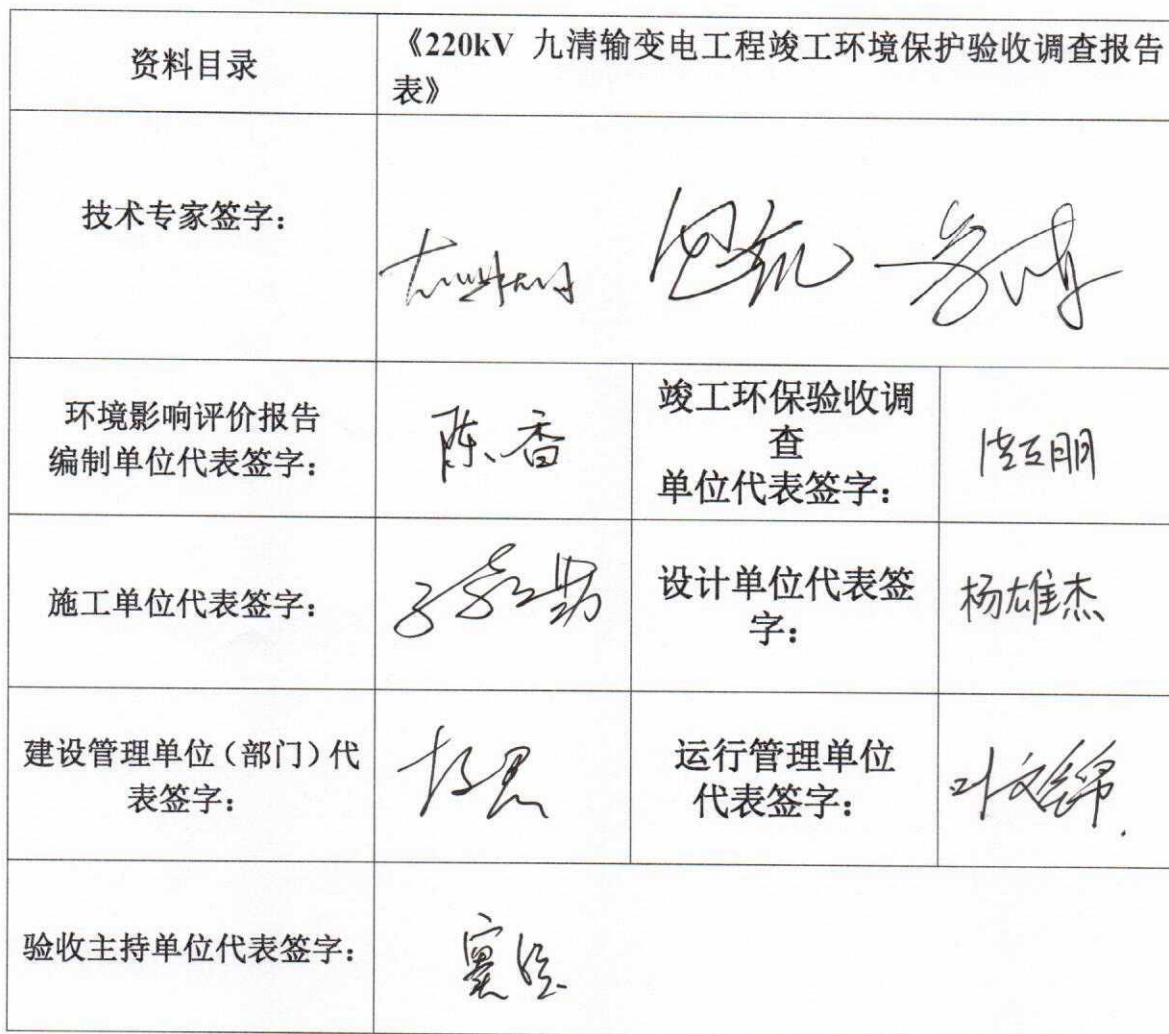 资料目录
《220kV 九清输变电工程竣工环境保护验收调查报告
表》
技术专家签字：
环境影响评价报告
编制单位代表签字：
陈香
竣工环保验收调
查
单位代表签字：
施工单位代表签字：
设计单位代表签
字：
杨雄杰
建设管理单位（部门）代
表签字：
运行管理单位
代表签字：
叶文锦
验收主持单位代表签字：